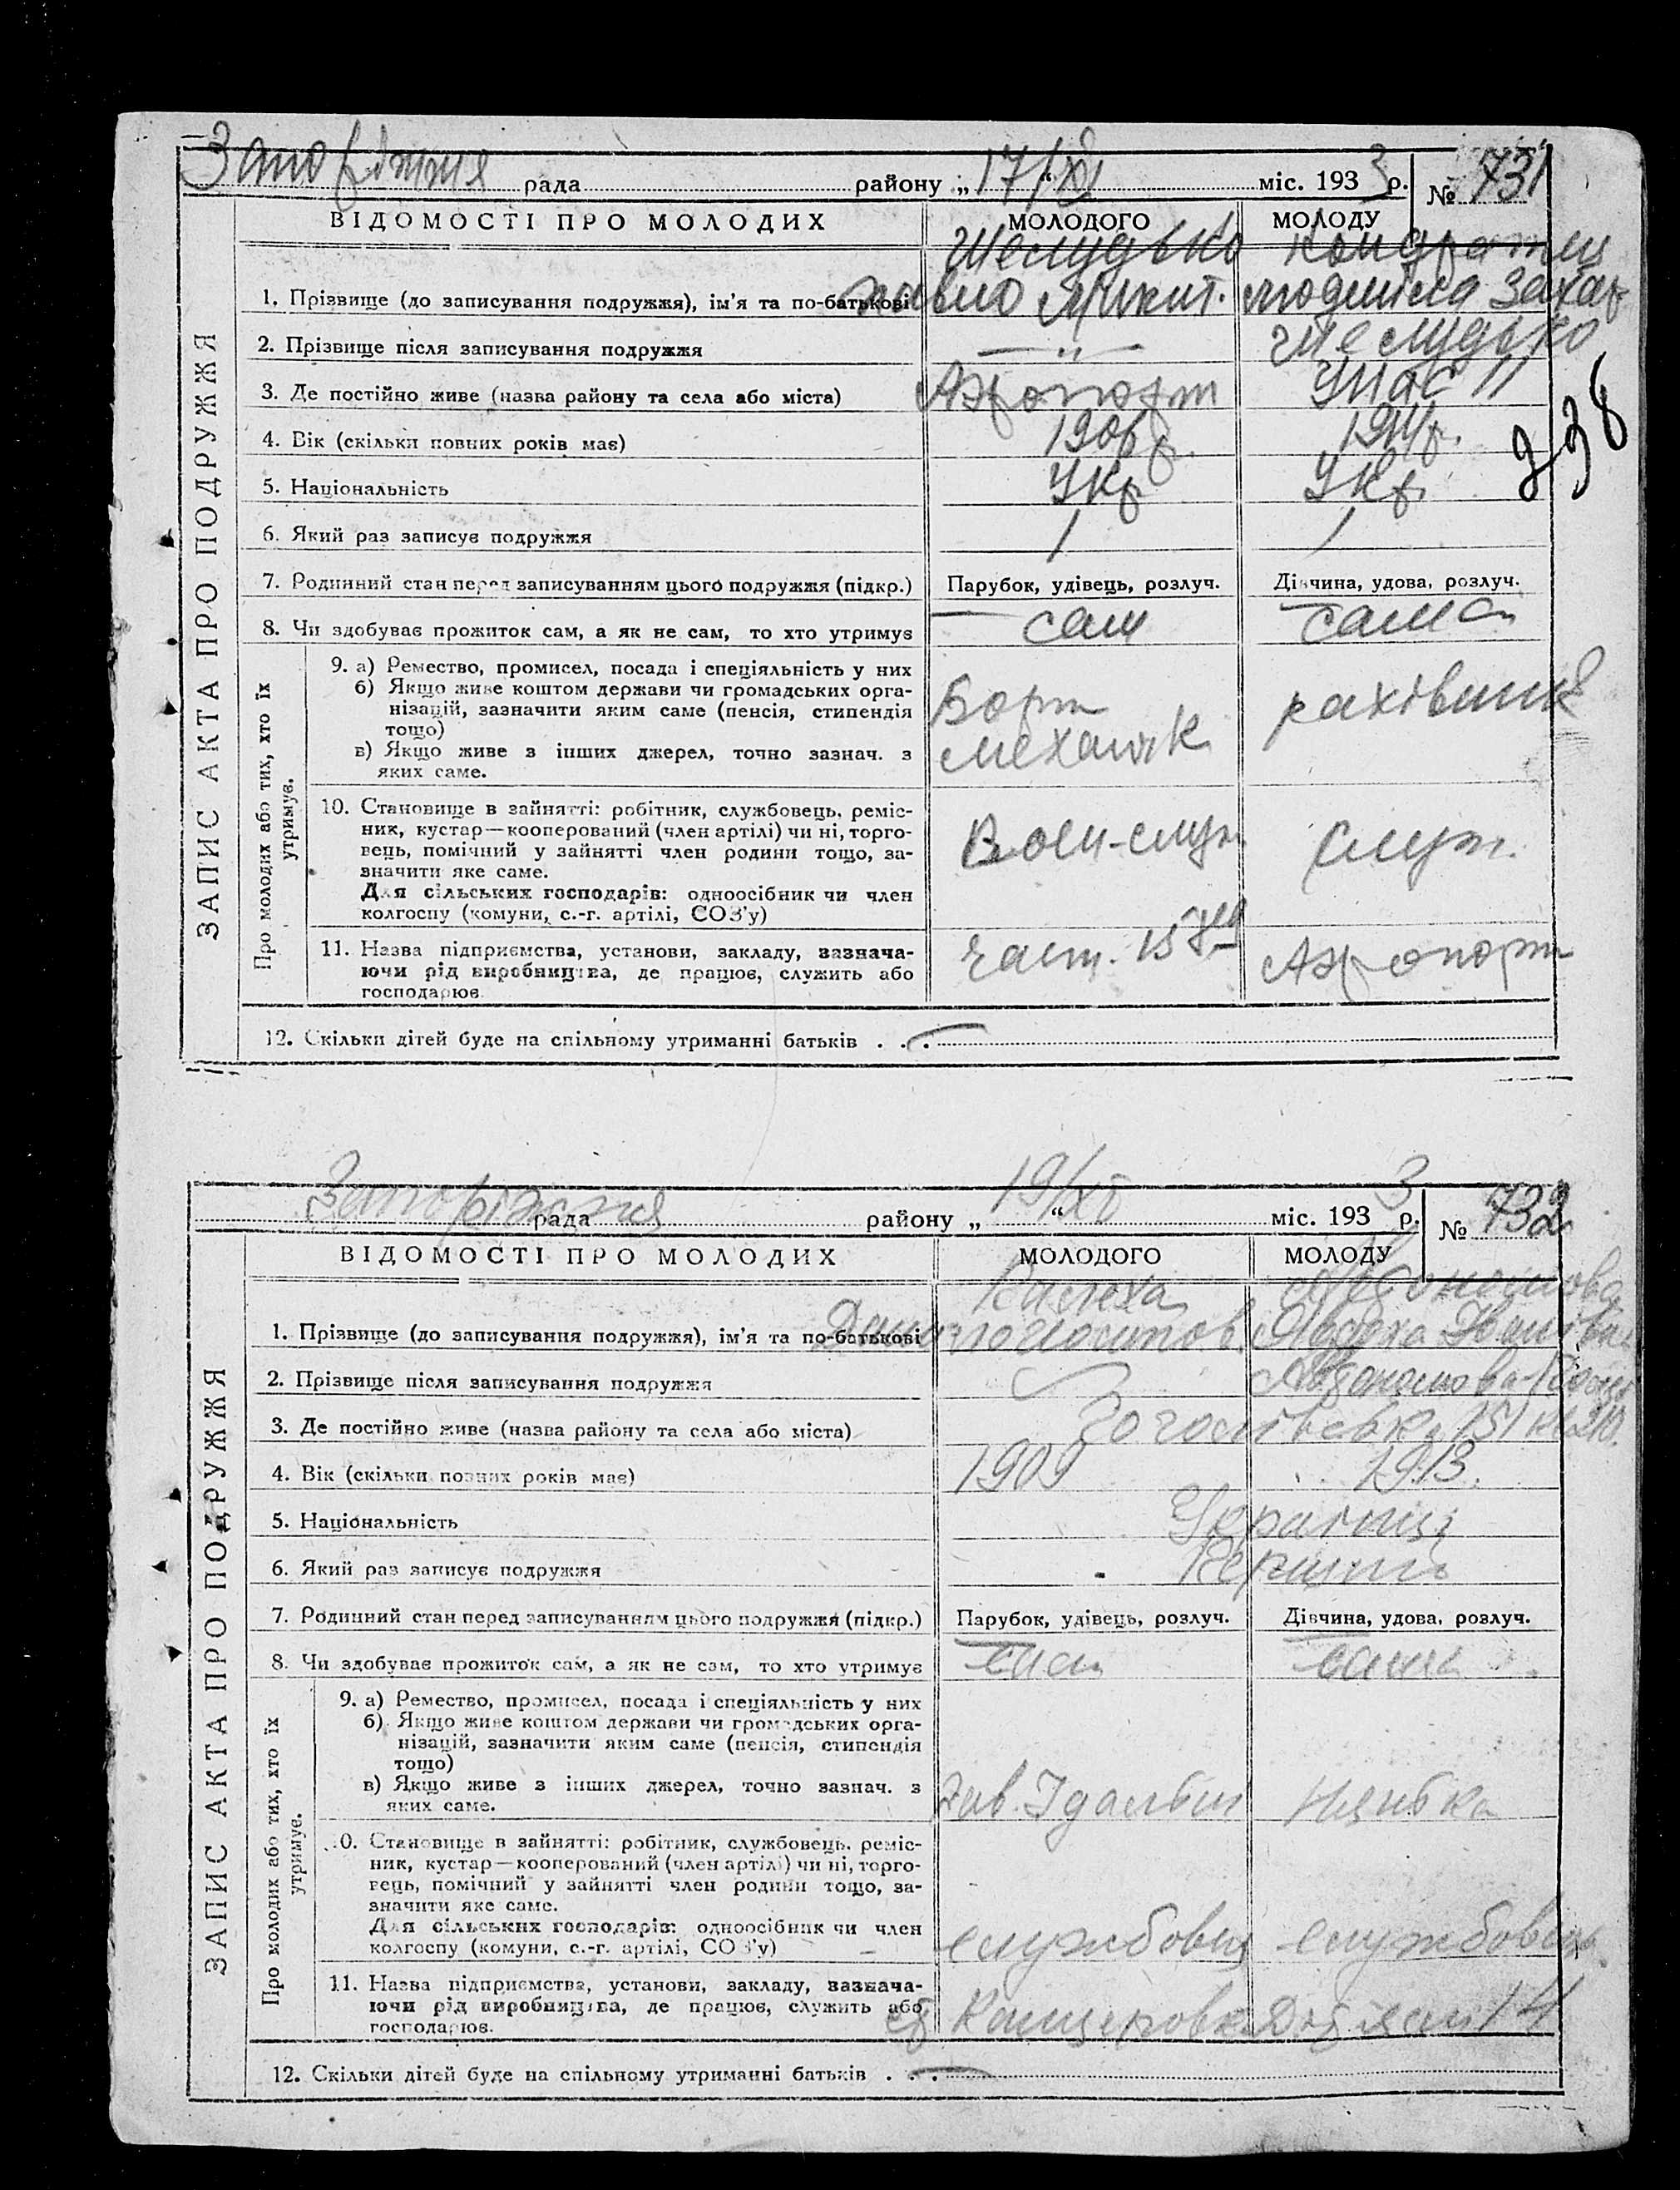 Запоріжжя рада району „17/XI“ міс. 1933 р. № 731
ВІДОМОСТІ ПРО МОЛОДИХ МОЛОДОГО МОЛОДУ
Шелудько
1. Прізвище (до записування подружжя), ім'я та по-батькові Павло Микит. Людмила Захар
2. Прізвище після записування подружжя — „ — Шелудько
3. Де постійно живе (назва району та села або міста) Аэропорт
4. Вік (скільки повних років має) 1906 р. 1911 р.
238
5. Національність Укр Укр.
6. Який раз записує подружжя 1 1
7. Родинний стан перед записуванням цього подружжя (підкр.) Парубок, удівець, розлуч. Дівчина, удова, розлуч.
8. Чи здобуває прожиток сам, а як не сам, то хто утримує сам сама
ЗАПИС АКТА ПРО ПОДРУЖЖЯ
Про молодих або тих, хто їх утримує.
9. а) Ремество, промисел, посада і спеціяльність у них
б) Якщо живе коштом держави чи громадських орга-
нізацій, зазначити яким саме (пенсія, стипендія
тощо)
в) Якщо живе з інших джерел, точно зазнач. з
яких саме.
Борт
механік
рахівник
10. Становище в зайнятті: робітник, службовець, реміс-
ник, кустар—кооперований (член артілі) чи ні, торго-
вець, помічний у зайнятті член родини тощо, за-
значити яке саме.
Для сільських господарів: одноосібник чи член
колгоспу (комуни, с.-г. артілі, СОЗ'у)
Воен-служ. Служ.
11. Назва підприємства, установи, закладу, зазнача-
ючи рід виробництва, де працює, служить або
господарює.
част. 15 Аэропорт
12. Скільки дітей буде на спільному утриманні батьків . . . —
Запоріжжя рада району „19/XI“ міс. 1933 р. № 732
ВІДОМОСТІ ПРО МОЛОДИХ МОЛОДОГО МОЛОДУ
1. Прізвище (до записування подружжя), ім'я та по-батькові Данило
2. Прізвище після записування подружжя
3. Де постійно живе (назва району та села або міста) Гоголівська 151
4. Вік (скільки повних років має) 1909 1913.
5. Національність Українці
6. Який раз записує подружжя Перший
7. Родинний стан перед записуванням цього подружжя (підкр.) Парубок, удівець, розлуч. Дівчина, удова, розлуч.
8. Чи здобуває прожиток сам, а як не сам, то хто утримує сам сама
ЗАПИС АКТА ПРО ПОДРУЖЖЯ
Про молодих або тих, хто їх утримує.
9. а) Ремество, промисел, посада і спеціяльність у них
б) Якщо живе коштом держави чи громадських орга-
нізацій, зазначити яким саме (пенсія, стипендія
тощо)
в) Якщо живе з інших джерел, точно зазнач. з
яких саме.
Зав. Їдальні Нянька
10. Становище в зайнятті: робітник, службовець, реміс-
ник, кустар—кооперований (член артілі) чи ні, торго-
вець, помічний у зайнятті член родини тощо, за-
значити яке саме.
Для сільських господарів: одноосібник чи член
колгоспу (комуни, с.-г. артілі, СОЗ'у)
службовець службовець
11. Назва підприємства, установи, закладу, зазнача-
ючи рід виробництва, де працює, служить або
господарює.
14
12. Скільки дітей буде на спільному утриманні батьків . . . —